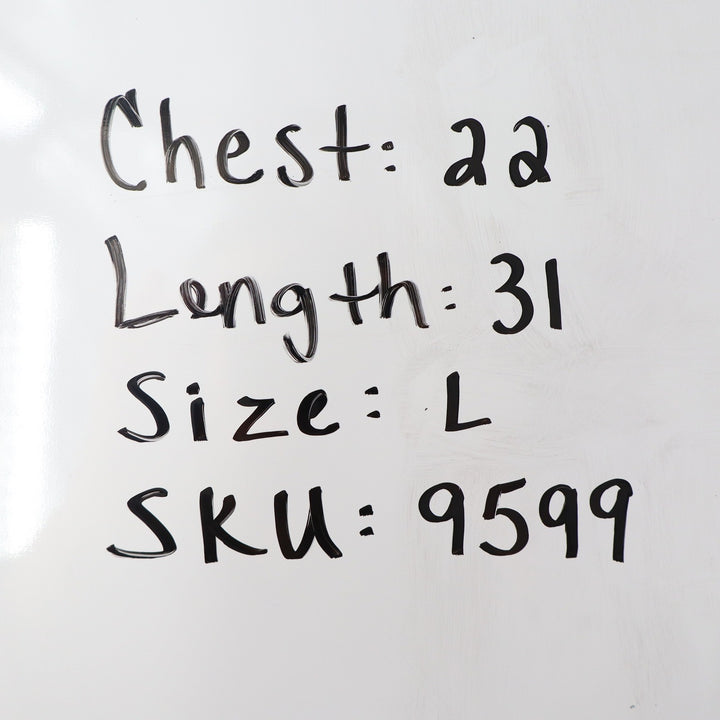 Chest: 22
Length: 31
Size: L
SKU: 9599